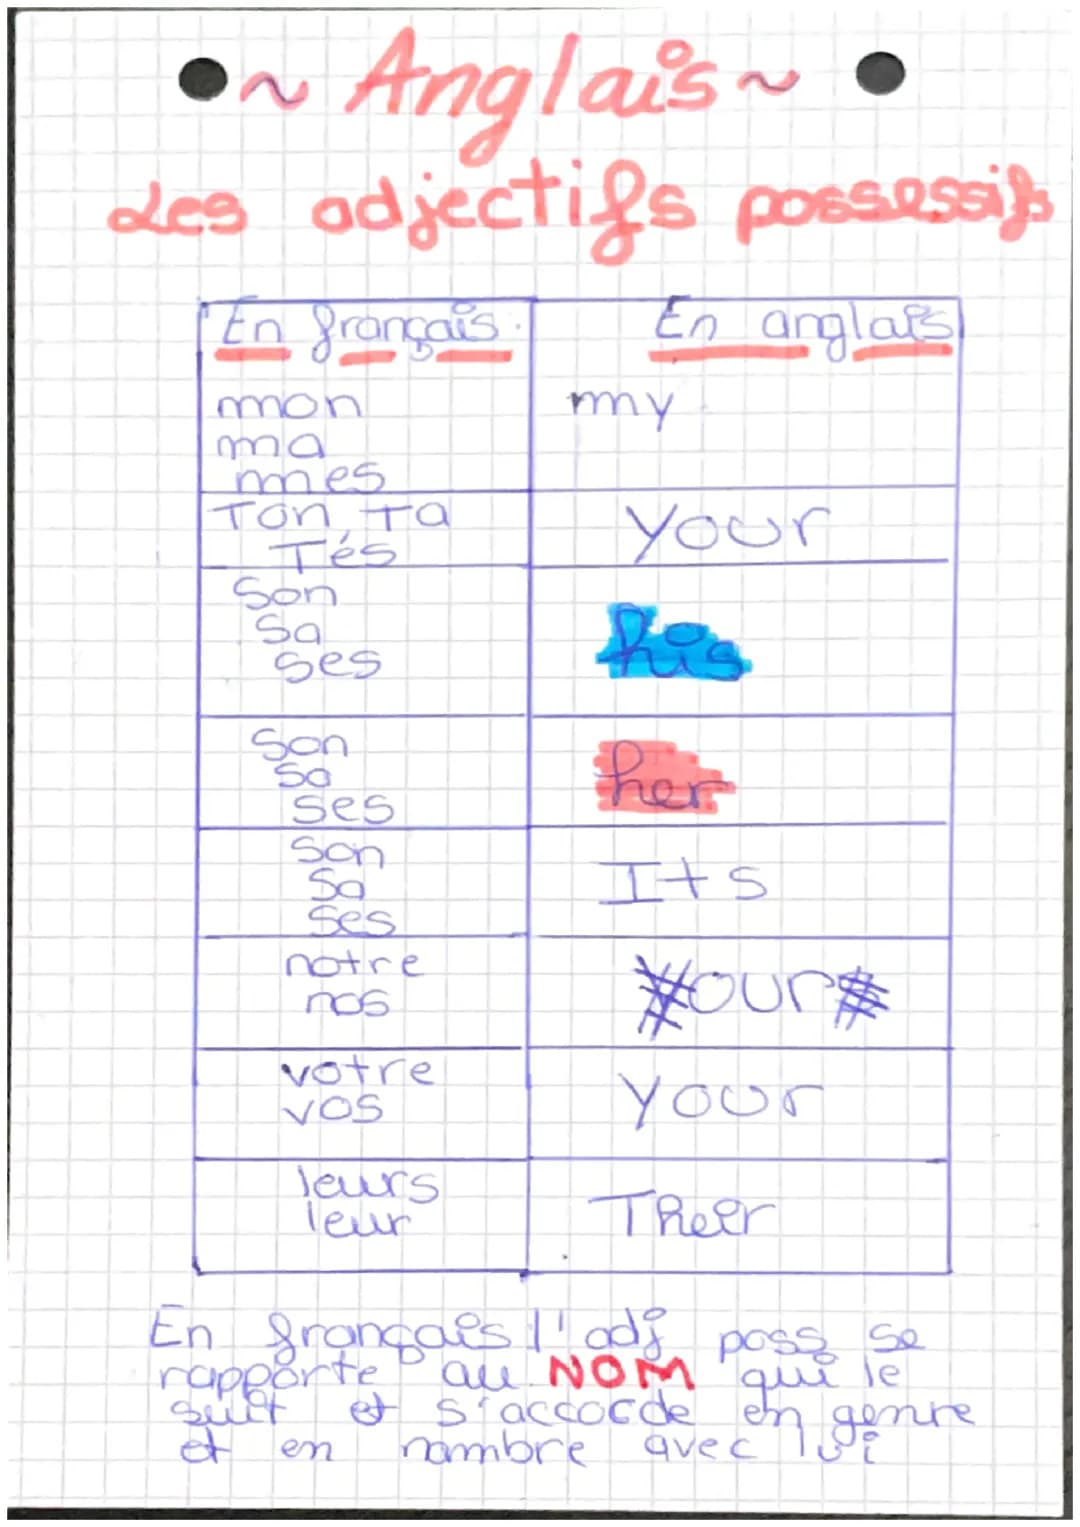 ~ Anglais ~
Les adjectifs possessifs
En français
En anglais
mon
ma
mes
my
Ton, Ta
Tés
your
Son
Sa
ses
his
Son
Sa
ses
her
Son
Sa
Ses
Its
notre
nos
our
votre
vos
your
leurs
leur
Their
En français l'adj poss se
rapporte au NOM qui le
suit et s'accorde en genre
et en nombre avec lui